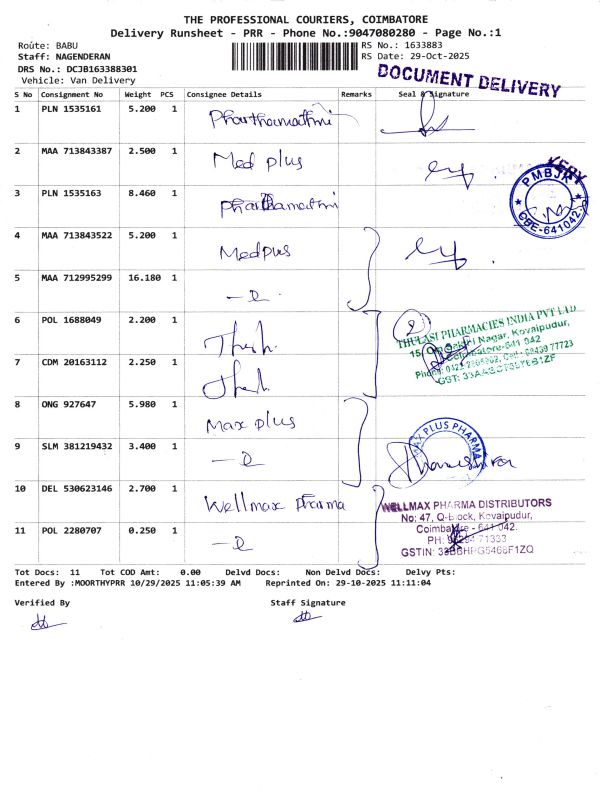 THE PROFESSIONAL COURIERS, COIMBATORE
Delivery Runsheet - PRR - Phone No.:9047080280 - Page No.:1
Route: BABU
RS No.: 1633883
Staff: NAGENDERAN
RS Date: 29-Oct-2025
DRS No.: DCJB163388301
Vehicle: Van Delivery
DOCUMENT DELIVERY
S No Consignment No Weight PCS Consignee Details Remarks Seal & Signature
1 PLN 1535161 5.200 1
2 MAA 713843387 2.500 1 Med plus
PMBJK
CBE-641042.
3 PLN 1535163 8.460 1
4 MAA 713843522 5.200 1 Medplus
5 MAA 712995299 16.180 1
6 POL 1688049 2.200 1
2
THULASI PHARMACIES INDIA PVT LTD
Nagar, Kovaipudur,
Coimbatore-641 042
7 CDM 20163112 2.250 1
8 ONG 927647 5.980 1 Max plus
MAX PLUS PHARMA
9 SLM 381219432 3.400 1
10 DEL 530623146 2.700 1 Wellmax Pharma
WELLMAX PHARMA DISTRIBUTORS
No: 47, Q-Block, Kovaipudur,
Coimbatore - 641 042.
11 POL 2280707 0.250 1
Tot Docs: 11 Tot COD Amt: 0.00 Delvd Docs: Non Delvd Docs: Delvy Pts:
Entered By :MOORTHYPRR 10/29/2025 11:05:39 AM Reprinted On: 29-10-2025 11:11:04
Verified By
Staff Signature